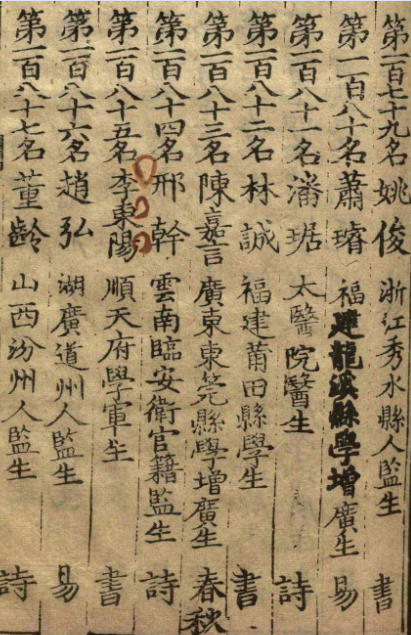 第一百七十九名姚俊 浙江秀水縣人監生 書
第一百八十名蕭璿 福建龍溪縣學增廣生 易
第一百八十一名潘琚 太醫院醫生 詩
第一百八十二名林誠 福建莆田縣學生 書
第一百八十三名陳嘉言 廣東東莞縣學增廣生 春秋
第一百八十四名邢幹 雲南臨安衛官籍監生 詩
第一百八十五名李東陽 順天府學軍生 書
第一百八十六名趙弘 湖廣道州人監生 易
第一百八十七名董齡 山西汾州人監生 詩